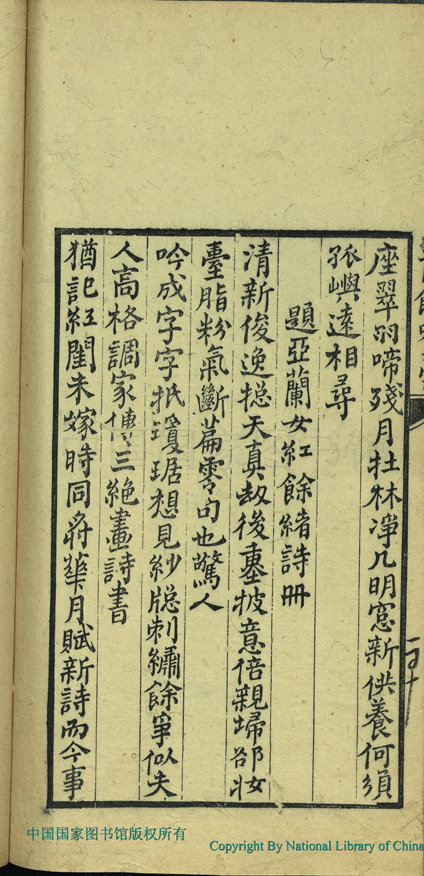 座翠羽啼殘月壯林凈几明窓新供養何須
孤嶼遠相尋
題亞蘭女紅餘緒詩冊
清新俊逸捴天真劫後重披意倍親埽卻妝
臺脂粉氣斷篇零句也驚人
吟成字字抵瓊琚想見紗牕刺繡餘爭似夫
人高格調家傳三絕畫詩書
猶記紅閨未嫁時同將華月賦新詩而今事
中国国家图书馆版权所有
Copyright By National Library of China